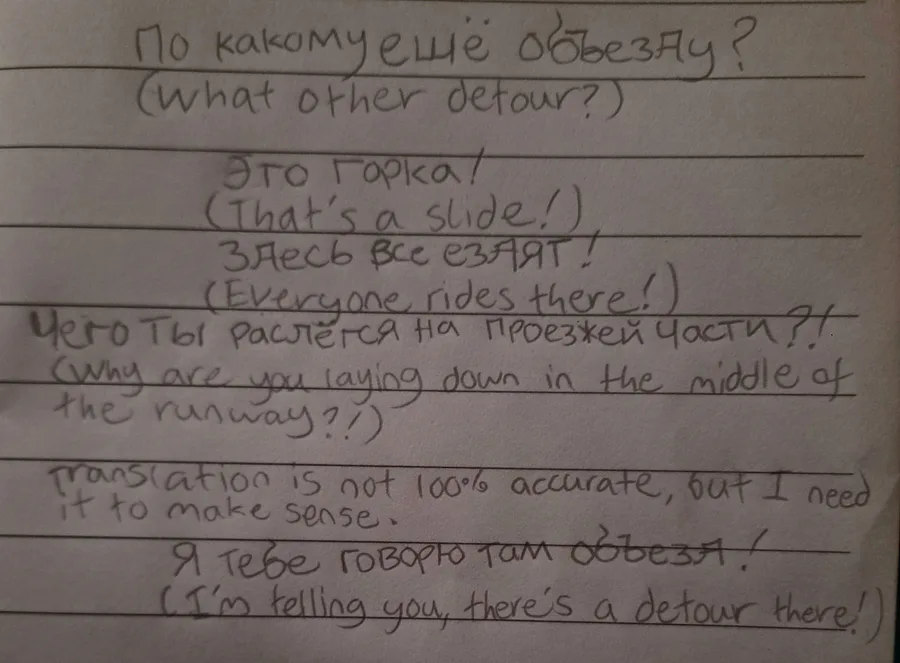 По какому ещё объезду?
(What other detour?)
Это горка!
(That's a slide!)
Здесь все ездят!
(Everyone rides there!)
Чего ты раслёгся на проезжей части?!
(Why are you laying down in the middle of
the runway?!)
Translation is not 100% accurate, but I need
it to make sense.
Я тебе говорю там объезд!
(I'm telling you, there's a detour there!)